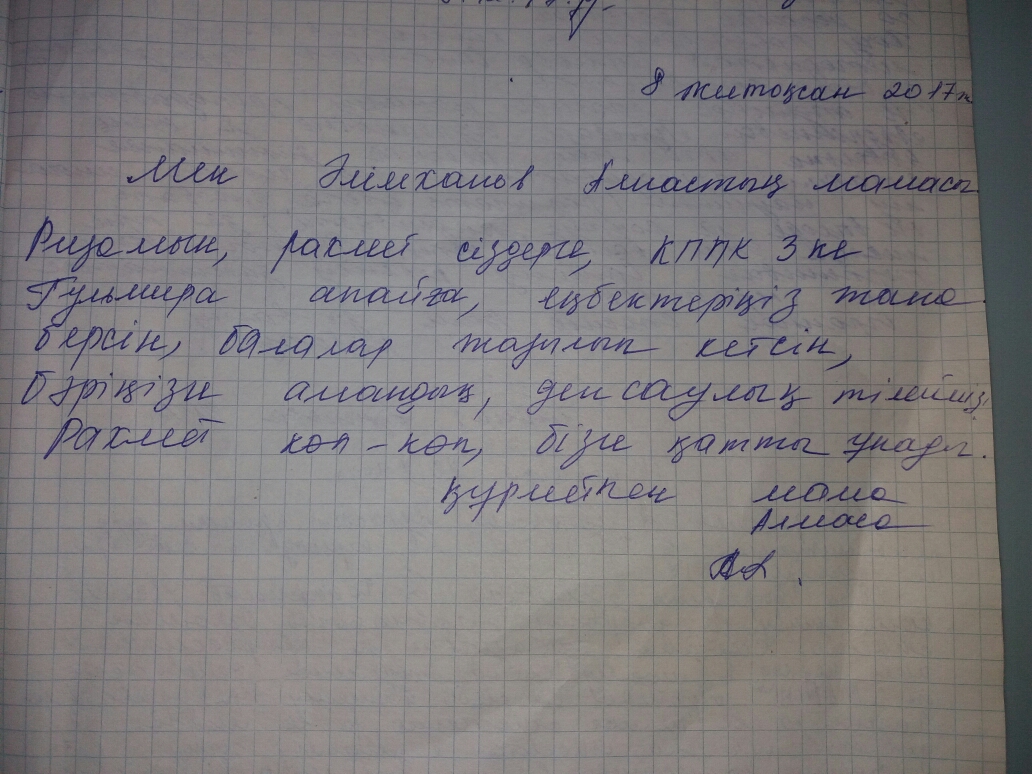 8 желтоқсан 2017ж
Мен Әлімханов Алмастың мамасы
Ризамын, рахмет сіздерге, КППК 3 ке
Гульмира апайға, еңбектеріңіз жана
берсін, балалар жазылып кетсін,
бәріңізге амандық, денсаулық тілейміз
Рахмет көп-көп, бізге қатты ұнады.
Құрметпен мама
Алмаса